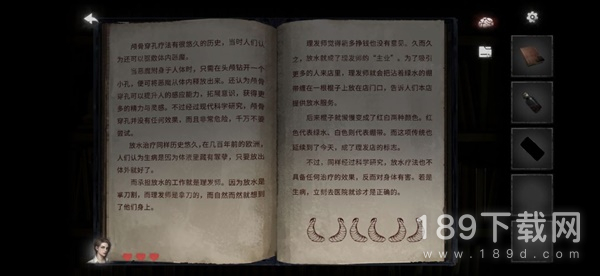 颅骨穿孔疗法有很悠久的历史，当时人们认
为还可以驱散体内恶魔。
当恶魔附身于人体时，只需在头颅钻开一个
小孔，便可将恶魔从体内释放出来。还认为颅骨
穿孔可以提升人的感应能力，拓展意识，获得更
多的精力与灵感。不过经过现代科学研究，颅骨
穿孔并没有任何效果，而且非常危险，千万不要
尝试。
放水疗法同样历史悠久，在几百年前的欧洲，
人们认为生病是因为体液里藏有
体外就好了。
而承担放水的工作就是理发师。因为放水是
拿刀割，而理发师是拿刀的，而自然而然就想到
了他们身上。
理发师觉得能多挣钱也没有意见。久而久
之，放水就成了理发师的“主业”。为了吸引
更多的人来店里，理发师就会把沾有绿水的绷
带缠在一根棍子上放在店门口，告诉人们本店
提供放水服务。
后来棍子就慢慢变成了红白两种颜色。红
色代表绿水，白色则代表绷带。而这项传统也
延续到了今天，成了理发店的标志。
不过，同样经过科学研究，放水疗法也不
具备任何治疗的效果，反而对身体有害。若是
生病，立刻去医院就诊才是正确的。
189下载网
www.189d.com